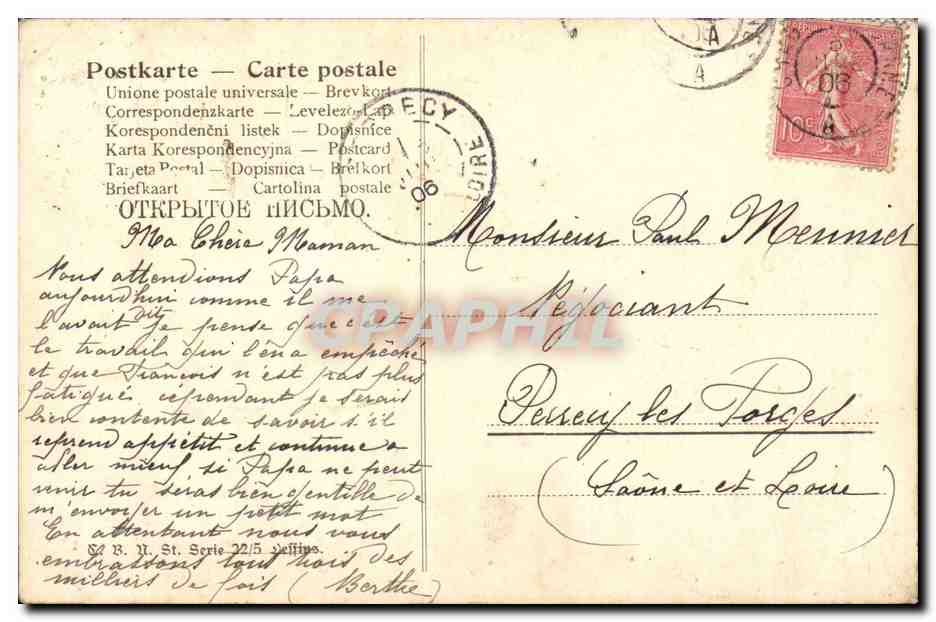 Postkarte — Carte postale
Unione postale universale — Brevkort
Correspondenzkarte — Levelező-Lap
Korespondenční listek — Dopisnice
Karta Korespondencyjna — Postcard
Tarjeta Postal — Dopisnica — Brefkort
Briefkaart — Cartolina postale
ОТКРЫТОЕ ПИСЬМО.
Ma Chère Maman
Nous attendions Papa
aujourdhui comme il me
l'avait dit je pense que c'est
le travail qui l'en a empêché
et que François n'est pas plus
fatigué cependant je serais
bien contente de savoir s'il
reprend appétit et continue a
aller mieux si Papa ne peut
venir tu seras bien gentille de
m'envoyer un petit mot
En attentant nous vous
embrassons tous trois des
milliers de fois (Berthe)
B. N. St. Serie 22/5 dessins.
Monsieur Paul Meunier
Négociant
Perrecy les Forges
(Saône et Loire)
RECY
LOIRE
06
06
A
A
A
10c
CPAPHIL